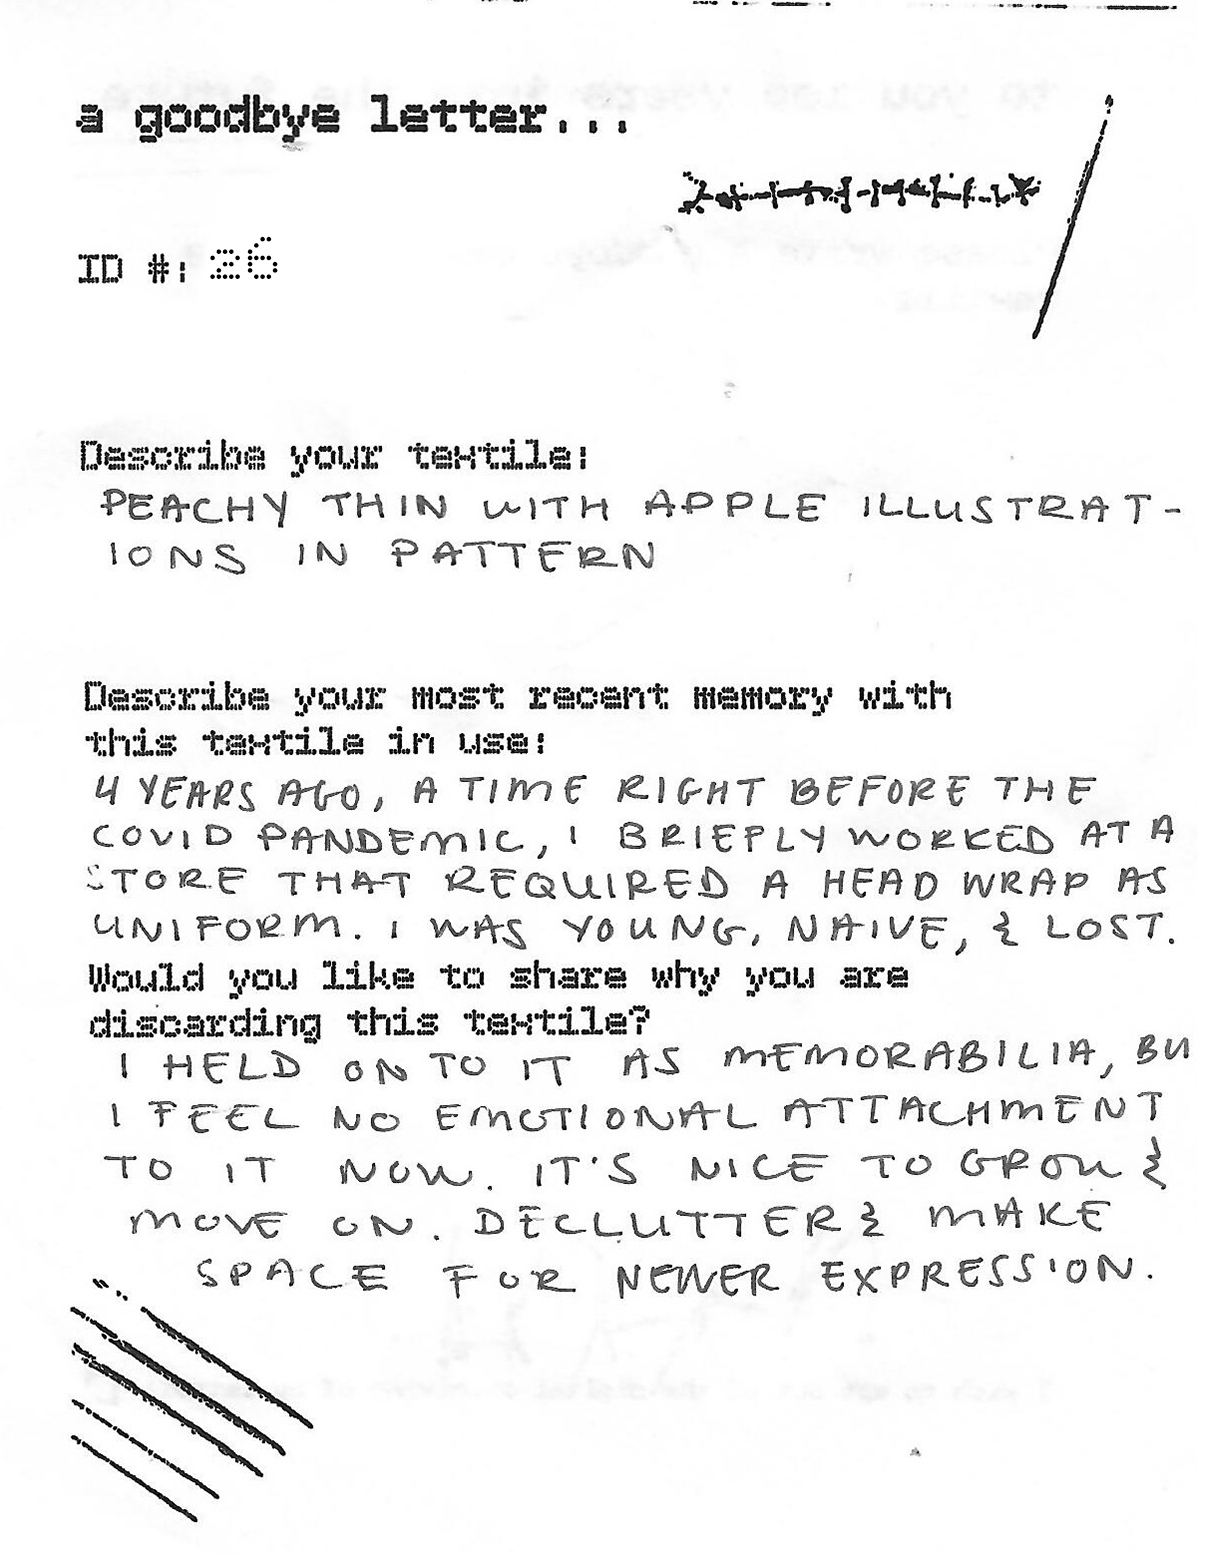 a goodbye letter...
ID #: 26
Describe your textile:
PEACHY THIN WITH APPLE ILLUSTRAT-
IONS IN PATTERN
Describe your most recent memory with
this textile in use:
4 YEARS AGO, A TIME RIGHT BEFORE THE
COVID PANDEMIC, I BRIEFLY WORKED AT A
STORE THAT REQUIRED A HEAD WRAP AS
UNIFORM. I WAS YOUNG, NAIVE, & LOST.
Would you like to share why you are
discarding this textile?
I HELD ONTO IT AS MEMORABILIA, BU
I FEEL NO EMOTIONAL ATTACHMENT
TO IT NOW. IT'S NICE TO GROW &
MOVE ON. DECLUTTER & MAKE
SPACE FOR NEWER EXPRESSION.